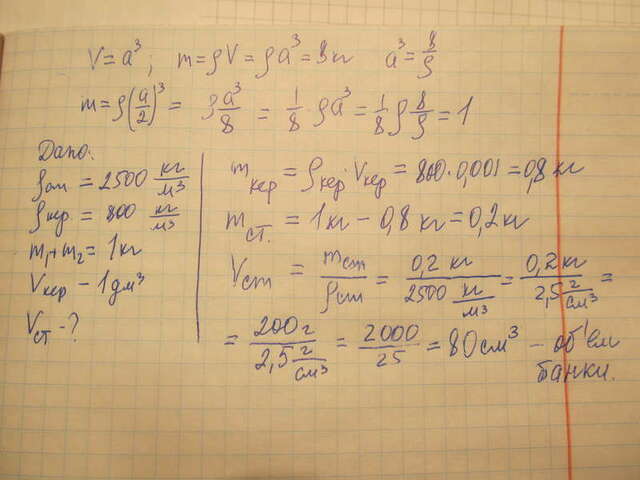 V = a³; m = ρV = ρa³ = 8кг a³ = 8/ρ
m = ρ(a/2)³ = ρa³/8 = 1/8 · ρa³ = 1/8 ρ 8/ρ = 1
Дано:
ρст = 2500 кг/м³
ρкер = 800 кг/м³
m₁+m₂ = 1кг
Vкер – 1дм³
Vст – ?
mкер = ρкер · Vкер = 800 · 0,001 = 0,8 кг
mст. = 1кг – 0,8 кг = 0,2 кг
Vст = mст/ρст = 0,2 кг/2500 кг/м³ = 0,2 кг/2,5 г/см³ =
= 200г/2,5 г/см³ = 2000/25 = 80 см³ – об'єм
банки.